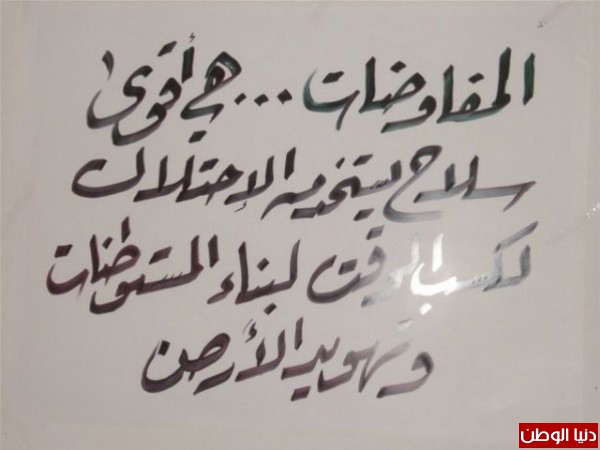 المفاوضات ... هي أقوى
سلاح يستخدمه الإحتلال
لكسب الوقت لبناء المستوطنات
وتهويد الأرض
دنيا الوطن